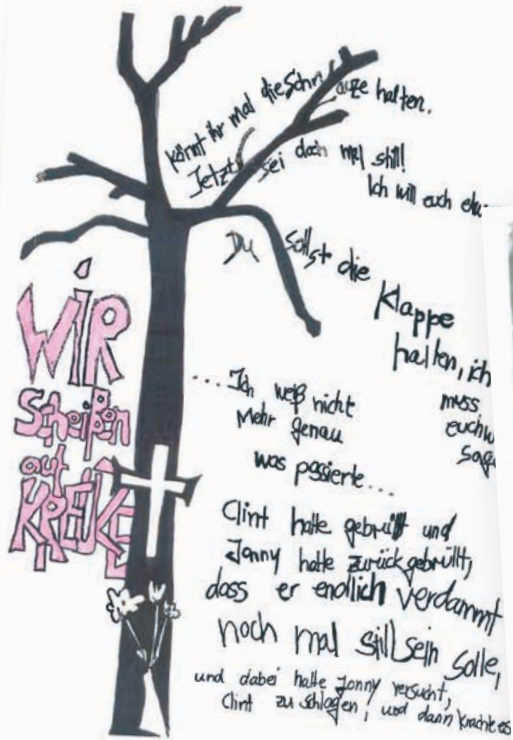 könnt ihr mal die Schnauze halten.
Jetzt sei doch mal still!
Ich will euch
Du sollst die
Klappe
halten, ich
muss
euch
WIR
Scheißen
auf
.... Ich weiß nicht
Mehr genau
was passierte...
Clint hatte gebrüllt und
Jonny hatte zurückgebrüllt,
dass er endlich verdammt
noch mal still sein solle,
und dabei hatte Jonny versucht,
Clint zu schlagen, und dann krachte es